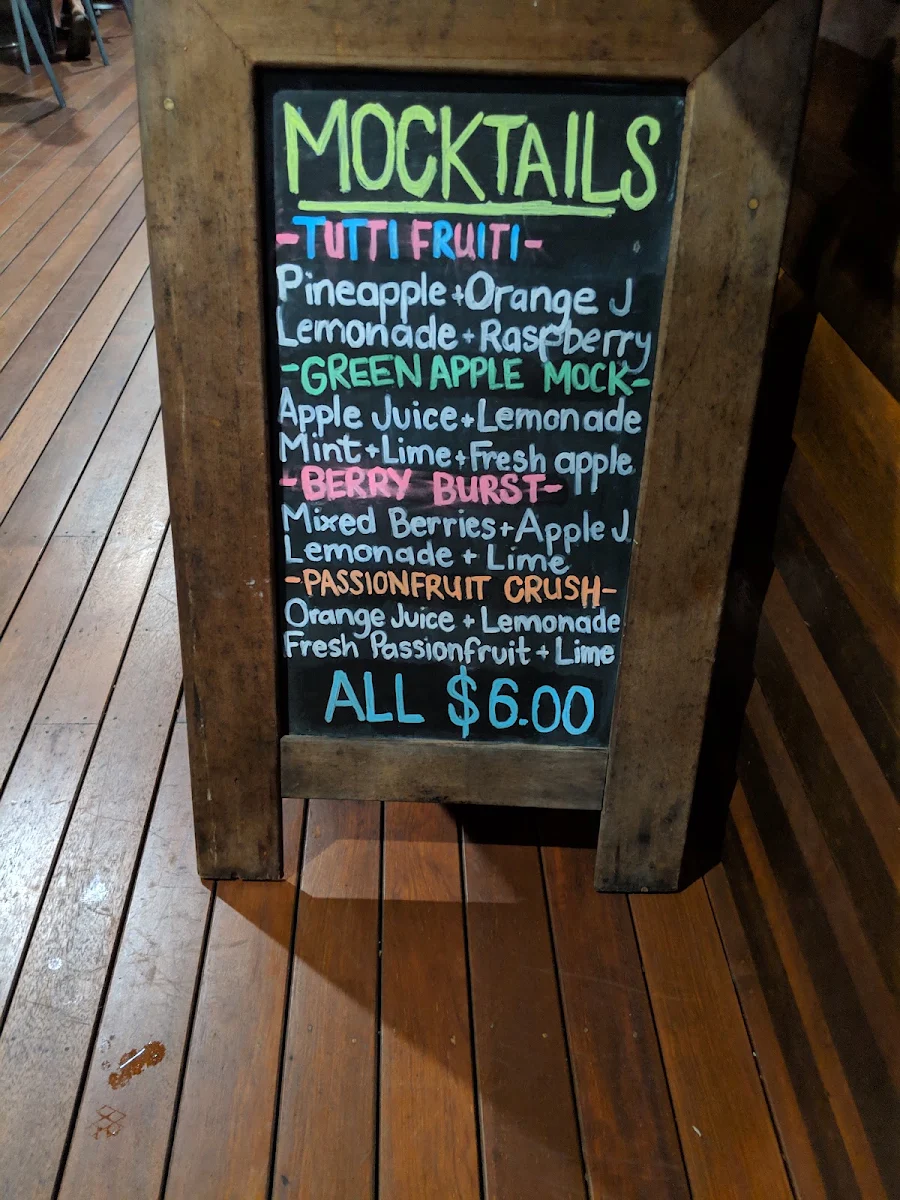 MOCKTAILS
-TUTTI FRUITI-
Pineapple + Orange J
Lemonade + Raspberry
-GREEN APPLE MOCK-
Apple Juice + Lemonade
Mint + Lime + Fresh apple
-BERRY BURST-
Mixed Berries + Apple J.
Lemonade + Lime
-PASSIONFRUIT CRUSH-
Orange Juice + Lemonade
Fresh Passionfruit + Lime
ALL $6.00